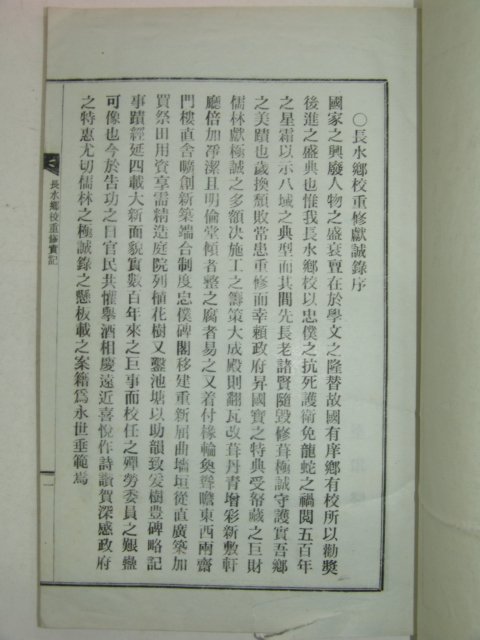 ○長水鄕校重修獻誠錄序
國家之興廢人物之盛衰亶在於學文之隆替故國有庠鄕有校所以勸奬
後進之盛典也惟我長水鄕校以忠僕之抗死護衛免龍蛇之禍閱五百年
之星霜以示八域之典型而其間先長老諸賢隨毁修葺極誠守護實吾鄕
之美蹟也歲換頹敗常患重修而幸賴政府昇國寶之特典受帑藏之巨財
儒林獻極誠之多額决施工之籌策大成殿則翻瓦改葺丹靑增彩新敷軒
廳倍加淨潔且明倫堂傾者整之腐者易之又着付椽輪奐聳瞻東西兩齋
門樓直舍曠創新築端合制度忠僕碑閣移建重新屈曲墻垣從直廣築加
買祭田用資享需精造庭院列植花樹又鑿池塘以助韻致爰樹豊碑略記
事蹟經延四載大新面貌實數百年來之巨事而校任之殫勞委員之艱
可像也今於告功之日官民共懽擧酒相慶遠近喜悅作詩讚賀深感政府
之特惠尤切儒林之極誠錄之懸板載之案籍爲永世垂範焉
長水鄕校重修實記
一